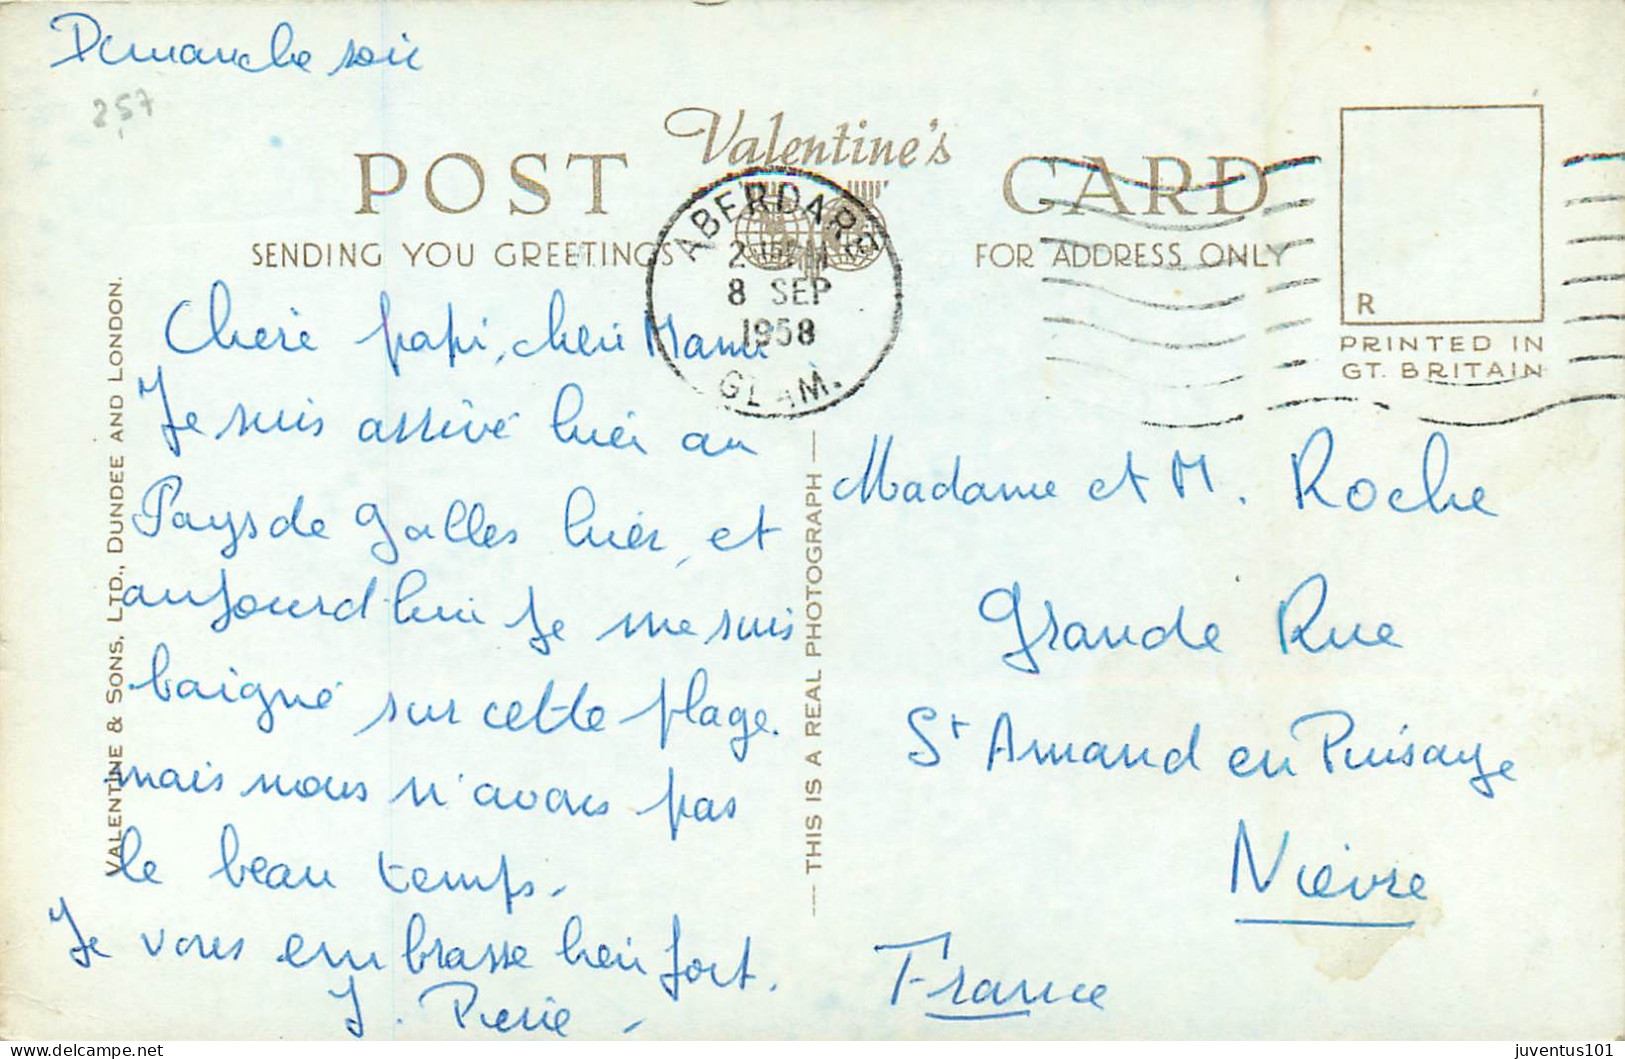 Dimanche soir
2,57
Valentine's
POST CARD
SENDING YOU GREETINGS
FOR ADDRESS ONLY
ABERDARE
8 SEP
1958
GLAM.
R
PRINTED IN
GT. BRITAIN
VALENTINE & SONS, LTD., DUNDEE AND LONDON.
THIS IS A REAL PHOTOGRAPH
Cheré papi, cheri Mami
Je suis arrivé hier au
Pays de Galles hier, et
aujourd'hui je me suis
baigné sur cette plage.
mais nous n'avons pas
le beau temps.
Je vous embrasse bien fort.
J. Pierre
Madame et M. Roche
Grande Rue
St Amand en Puisaye
Nièvre
France
juventus101